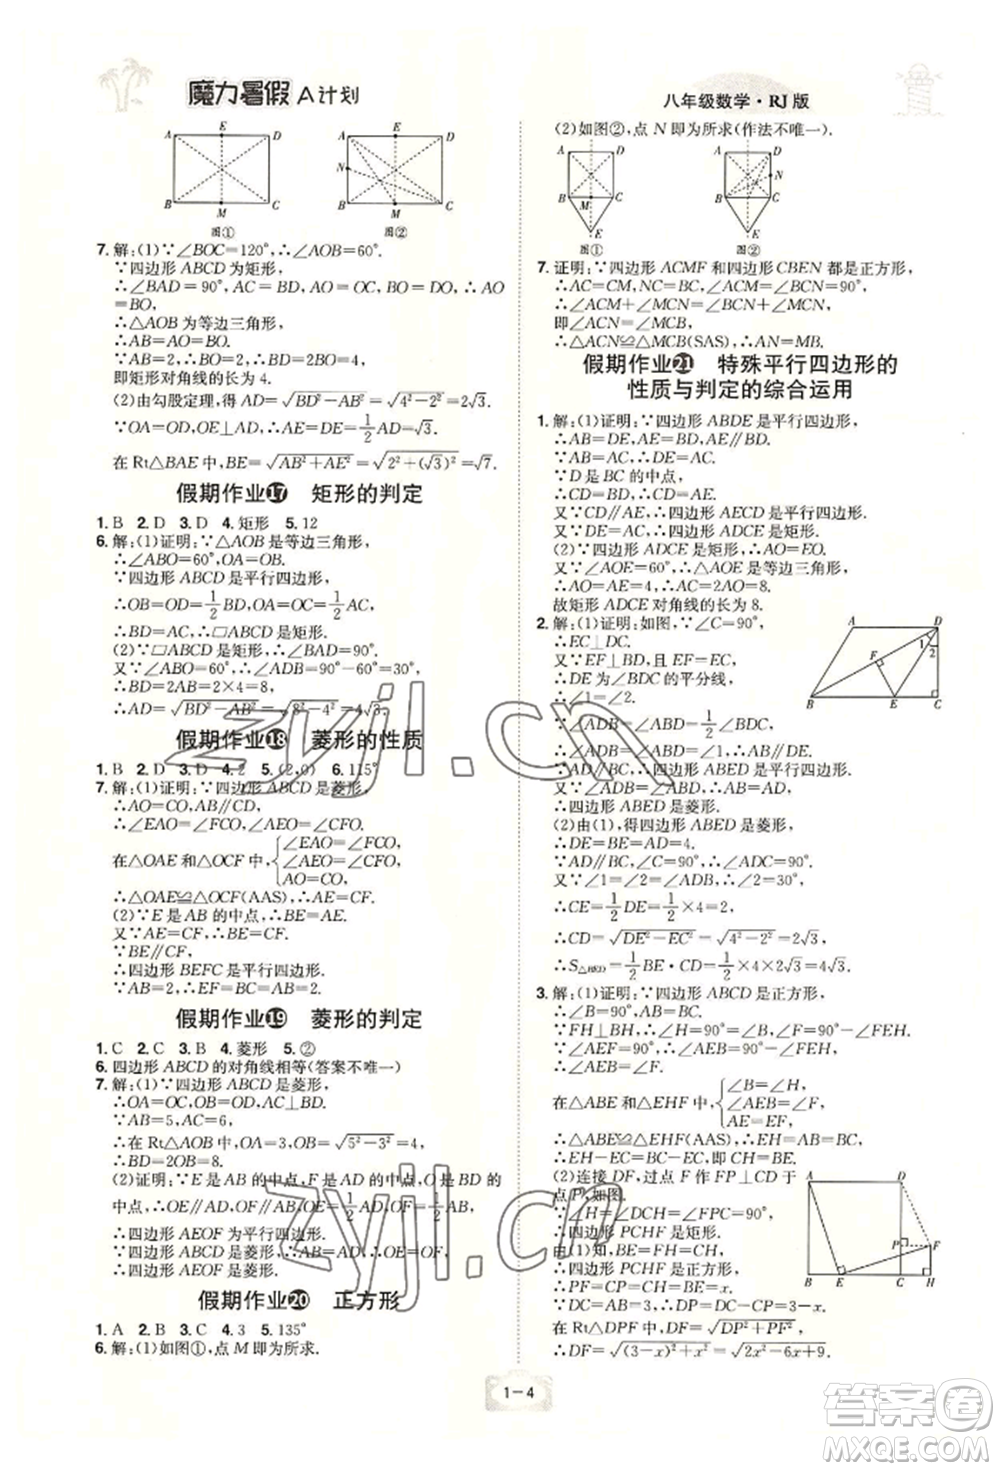 魔力暑假 A计划
A E D
B M C
图①
A E D
N
B M C
图②
7. 解:(1)∵∠BOC=120°,∴∠AOB=60°.
∵四边形 ABCD 为矩形,
∴∠BAD=90°,AC=BD=2AO,∴AO
=BO,
∴△AOB 为等边三角形,
∴AB=AO=BO=2,∴BD=4,
即矩形对角线的长为 4.
(2)由勾股定理,得 AD=√(BD²−AB²)=√(4²−2²)=2√3.
∵OA=OD,OE⊥AD,∴AE=DE=1/2AD=√3.
在 Rt△BAE 中,BE=√(AB²+AE²)=√(2²+(√3)²)=√7.
假期作业⑰ 矩形的判定
1. B 2. D 3. D 4. 矩形 5. 12
6. 解:(1)证明:∵△AOB 是等边三角形,
∴∠ABO=60°,OA=OB.
∵四边形 ABCD 是平行四边形,
∴OB=OD=1/2BD,OA=OC=1/2AC,
∴BD=AC,∴□ABCD 是矩形.
(2)∵□ABCD 是矩形,∴∠BAD=90°.
又∵∠ABO=60°,∴∠ADB=90°−60°=30°,
∴BD=2AB=2×4=8,
∴AD=√(BD²−AB²)=√(8²−4²)=4√3.
假期作业⑱ 菱形的性质
1. B 2. D 3. D 4. 2 5. (2,0) 6. 115°
7. 解:(1)证明:∵四边形 ABCD 是菱形,
∴AO=CO,AB∥CD,
∴∠EAO=∠FCO,∠AEO=∠CFO.
在△OAE 和△OCF 中,{∠EAO=∠FCO, ∠AEO=∠CFO, AO=CO,
∴△OAE≌△OCF(AAS),∴AE=CF.
(2)∵E 是 AB 的中点,∴BE=AE.
又∵AE=CF,∴BE=CF.
∵BE∥CF,
∴四边形 BEFC 是平行四边形.
又∵AB=2,∴EF=BC=AB=2.
假期作业⑲ 菱形的判定
1. C 2. C 3. B 4. 菱形 5. ②
6. 四边形 ABCD 的对角线相等(答案不唯一)
7. 解:(1)∵四边形 ABCD 是菱形,
∴OA=OC=OB=OD,AC⊥BD.
∵AB=5,AO=3,
∴在 Rt△AOB 中,OA=3,OB=√(5²−3²)=4,
∴BD=2OB=8.
(2)证明:∵E 是 AB 的中点,F 是 AD 的中点,O 是 BD 的
中点,∴OE∥AD,OF∥AB,OE=1/2AD,OF=1/2AB,
∴四边形 AEOF 是平行四边形.
∵四边形 ABCD 是菱形,∴AB=AD,∴OE=OF,
∴四边形 AEOF 是菱形.
假期作业⑳ 正方形
1. A 2. B 3. C 4. 3 5. 135°
6. 解:(1)如图①,点 M 即为所求.
八年级数学·RJ版
(2)如图②,点 N 即为所求(作法不唯一).
A D
B M C
E
图①
A D
N
B C
E
图②
7. 证明:∵四边形 ACMF 和四边形 CBEN 都是正方形,
∴AC=CM,NC=BC,∠ACM=∠BCN=90°,
∴∠ACM+∠MCN=∠BCN+∠MCN,
即∠ACN=∠MCB,
∴△ACN≌△MCB(SAS),∴AN=MB.
假期作业㉑ 特殊平行四边形的
性质与判定的综合运用
1. 解:(1)证明:∵四边形 ABDE 是平行四边形,
∴AB=DE,AE=BD,AE∥BD.
又∵AB=AC,∴DE=AC.
∵D 是 BC 的中点,
∴BD=CD,∴AE=CD.
又∵CD∥AE,∴四边形 AECD 是平行四边形.
又∵DE=AC,∴四边形 ADCE 是矩形.
(2)∵四边形 ADCE 是矩形,∴AO=EO.
又∵∠AOE=60°,∴△AOE 是等边三角形,
∴AO=AE=4,∴AC=2AO=8.
故矩形 ADCE 对角线的长为 8.
2. 解:(1)证明:如图,∵∠C=90°,
∴EC⊥DC.
又∵EF⊥BD,且 EF=EC,
∴DE 为∠BDC 的平分线,
∴∠1=∠2.
∵∠ADB=1/2∠BDC,
∴∠ADB=∠1,∴AD=AB=DE.
∵∠ADB=∠1,∴AB∥DE.
又∵AD∥BC,∴四边形 ABED 是平行四边形.
又∵AD=AB,
∴四边形 ABED 是菱形.
(2)由(1),得四边形 ABED 是菱形,
∴DE=BE=AD=4.
∵AD∥BC,∠C=90°,∴∠ADC=90°.
又∵∠1=∠2=∠ADB,∴∠2=30°,
∴CE=1/2DE=1/2×4=2,
∴CD=√(DE²−EC²)=√(4²−2²)=2√3,
∴S△BED=1/2BE·CD=1/2×4×2√3=4√3.
A D
F 1 2
B E C
3. 解:(1)证明:∵四边形 ABCD 是正方形,
∴∠B=90°,AB=BC.
∵FH⊥BH,∴∠H=90°=∠B.
∵∠AEF=90°,∴∠AEB+∠FEH=90°.
∵∠BAE+∠AEB=90°,∴∠BAE=∠FEH.
在△ABE 和△EHF 中,{∠B=∠H, ∠BAE=∠HEF, AE=EF,
∴△ABE≌△EHF(AAS),∴EH=AB=BC.
(2)连接 DF,过点 F 作 FP⊥CD 于
点 P,如图.
∵∠H=∠DCH=∠FPC=90°,
∴四边形 PCHF 是矩形.
由(1)知,BE=FH=CH,
∴四边形 PCHF 是正方形,
∴PF=CP=CH=BE=x.
∵DC=AB=3,∴DP=DC−CP=3−x.
在 Rt△DPF 中,DF=√(DP²+PF²),
∴DF=√((3−x)²+x²)=√(2x²−6x+9).
A D
P F
B E C H
1-4
zyjl.cn
zyjl.cn
答案圈
MXQE.COM